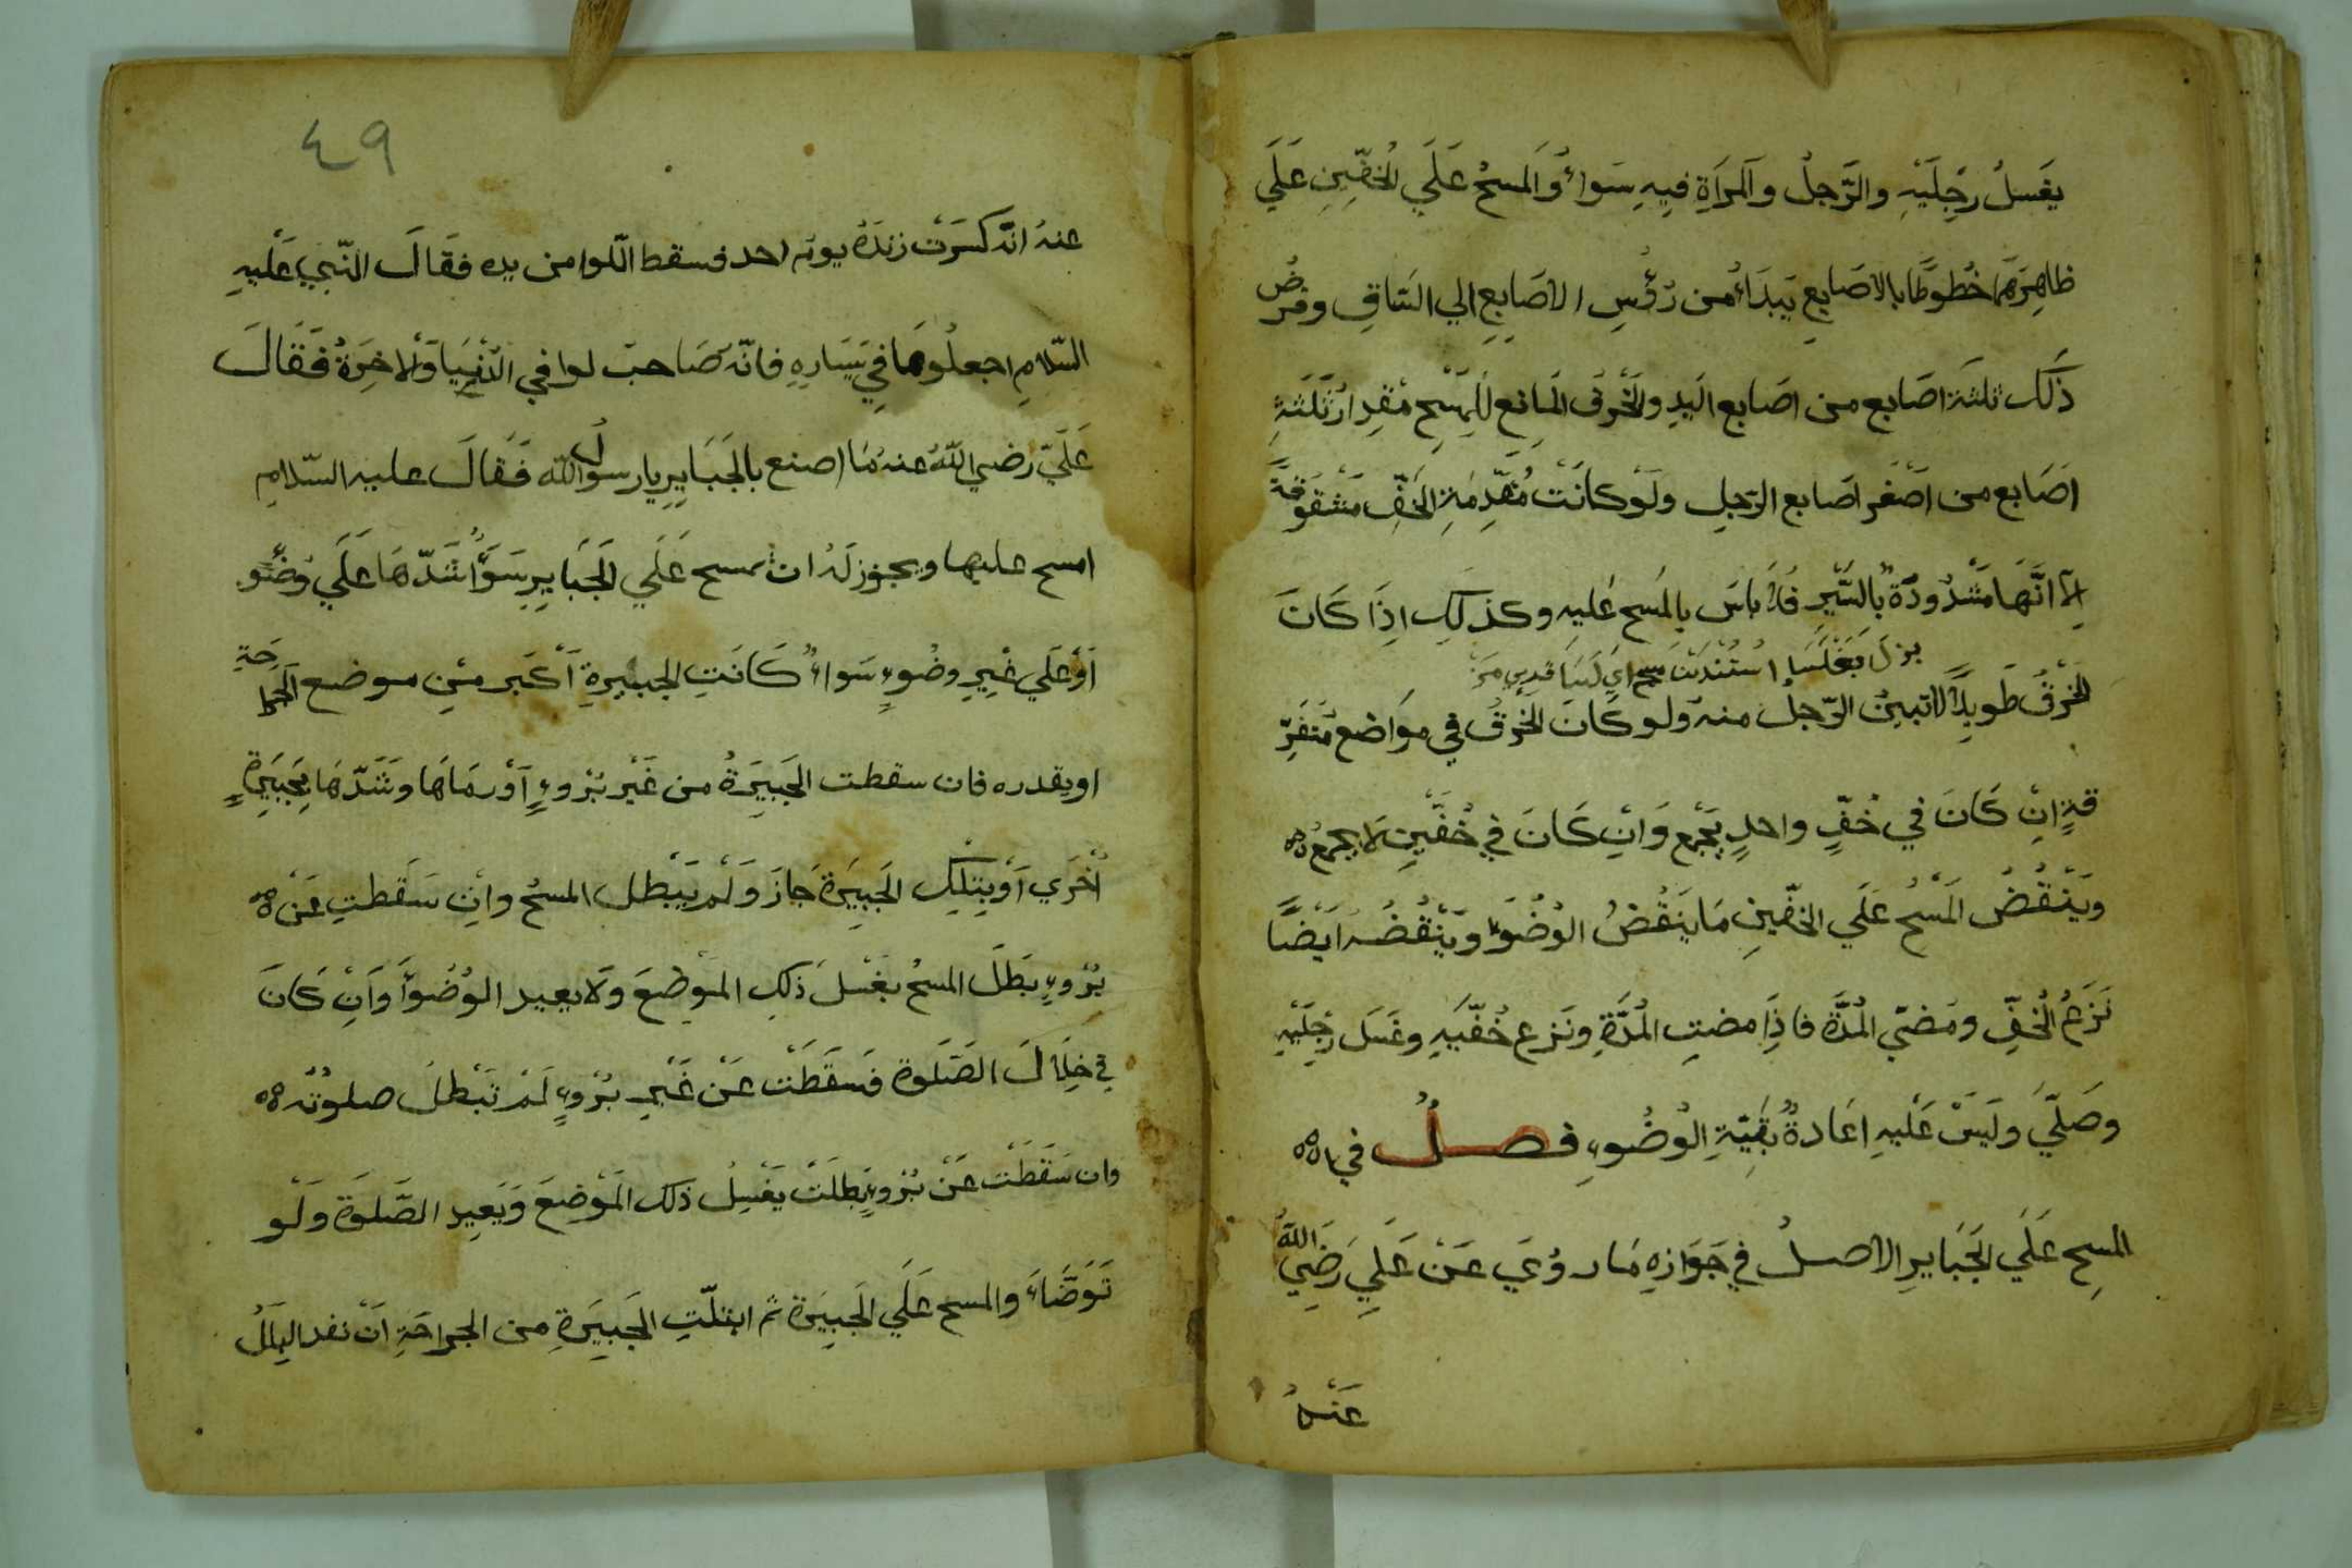 يغسل رجليه والرّجل والمرأة فيه سواء والمسح علي الخفّين علي
ظاهرهما خطوطا بالاصابع يبدأ من رؤس الاصابع الي الساق وفرض
ذلك ثلثة اصابع من اصابع اليد والخرق المانع للمسح مقدار ثلثة
اصابع من اصغر اصابع الرجل ولو كانت مقدمة الخفّ مشقوقة
الا انّها مشدودة بالسّير فلا باس بالمسح عليه وكذلك اذا كان
الخرق طويلا لا تبين الرّجل منه ولو كان الخرق في مواضع متفرّ
قة ان كان في خفّ واحد يجمع وان كان في خفّين لا يجمع
وينقض المسح علي الخفّين ما ينقض الوضوء وينقضه ايضا
نزع الخفّ ومضيّ المدّة فاذا مضت المدّة ونزع خفّيه وغسل رجليه
وصلّي وليس عليه اعادة بقيّة الوضوء فصل في
المسح علي الجباير الاصل في جوازه ما روي عن علي رضي الله
عنه
٤٩
عنه انّه كسرت زنده يوم احد فسقط اللّوا من يده فقال النّبي عليه
السّلام اجعلوها في يساره فانّه صاحب لوا في الدّنيا والاخرة فقال
عليّ رضي الله عنه ما اصنع بالجباير يا رسول الله فقال عليه السّلام
امسح عليها ويجوز له ان يمسح علي الجباير سواء شدّها علي وضو
او علي غير وضوء سواء كانت الجبيرة اكبر من موضع الجراحة
او بقدره فان سقطت الجبيرة من غير بروء او رماها وشدّها بجبيرة
اخري او بتلك الجبيرة جاز ولم يبطل المسح وان سقطت عن
بروء بطل المسح يغسل ذلك الموضع ولا يعيد الوضوأ وان كان
في خلال الصّلوة فسقطت عن غير بروء لم تبطل صلوته
وان سقطت عن بروء بطلت يغسل ذلك الموضع ويعيد الصّلوة ولو
توضّاء والمسح علي الجبيرة ثم ابتلّت الجبيرة من الجراحة ان نفد البلل